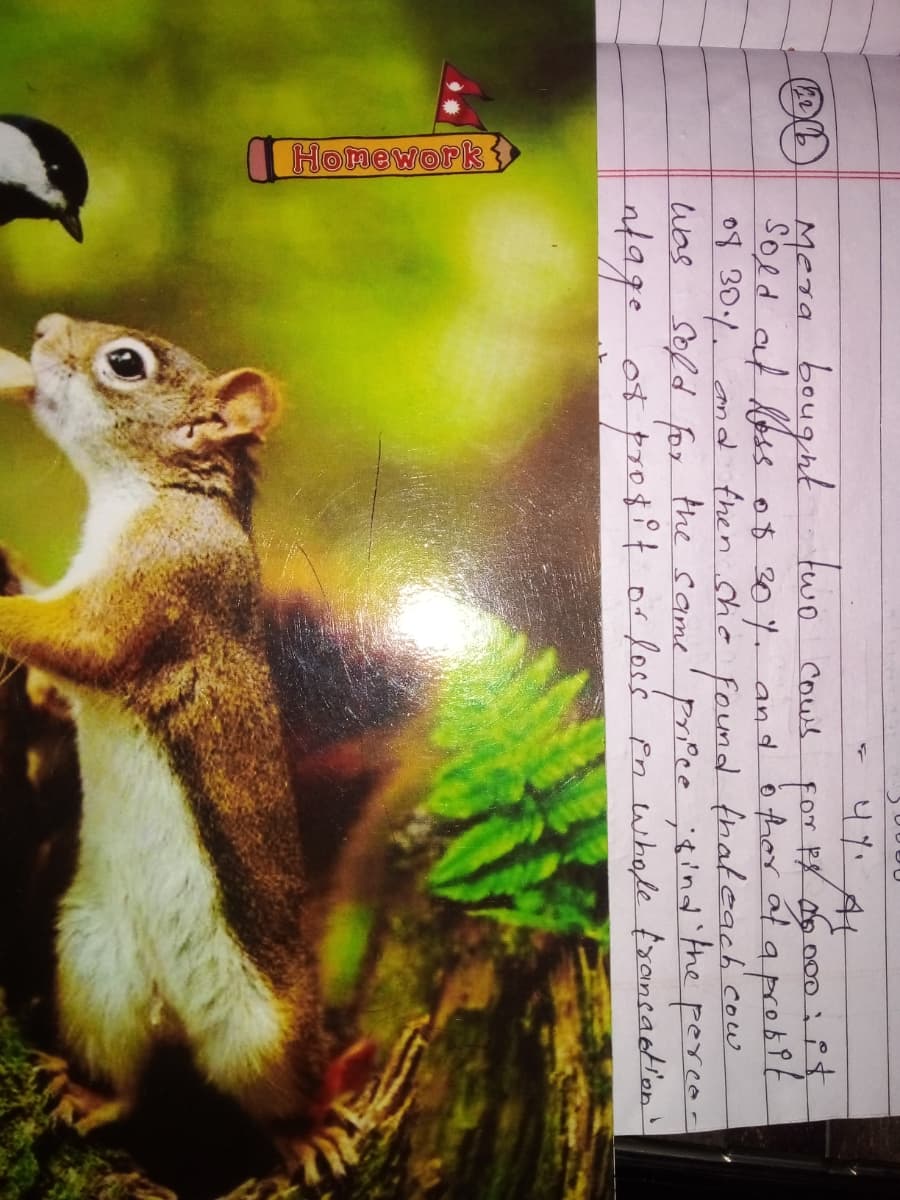 = 4%. A
22 b Mera bought two cows for Rs 000 ; if
Sold at loss of 30%. and other at a profit
of 30%. and then she found that each cow
was sold for the same price, find the perce-
ntage of profit or loss in whole trancadion'
Homework